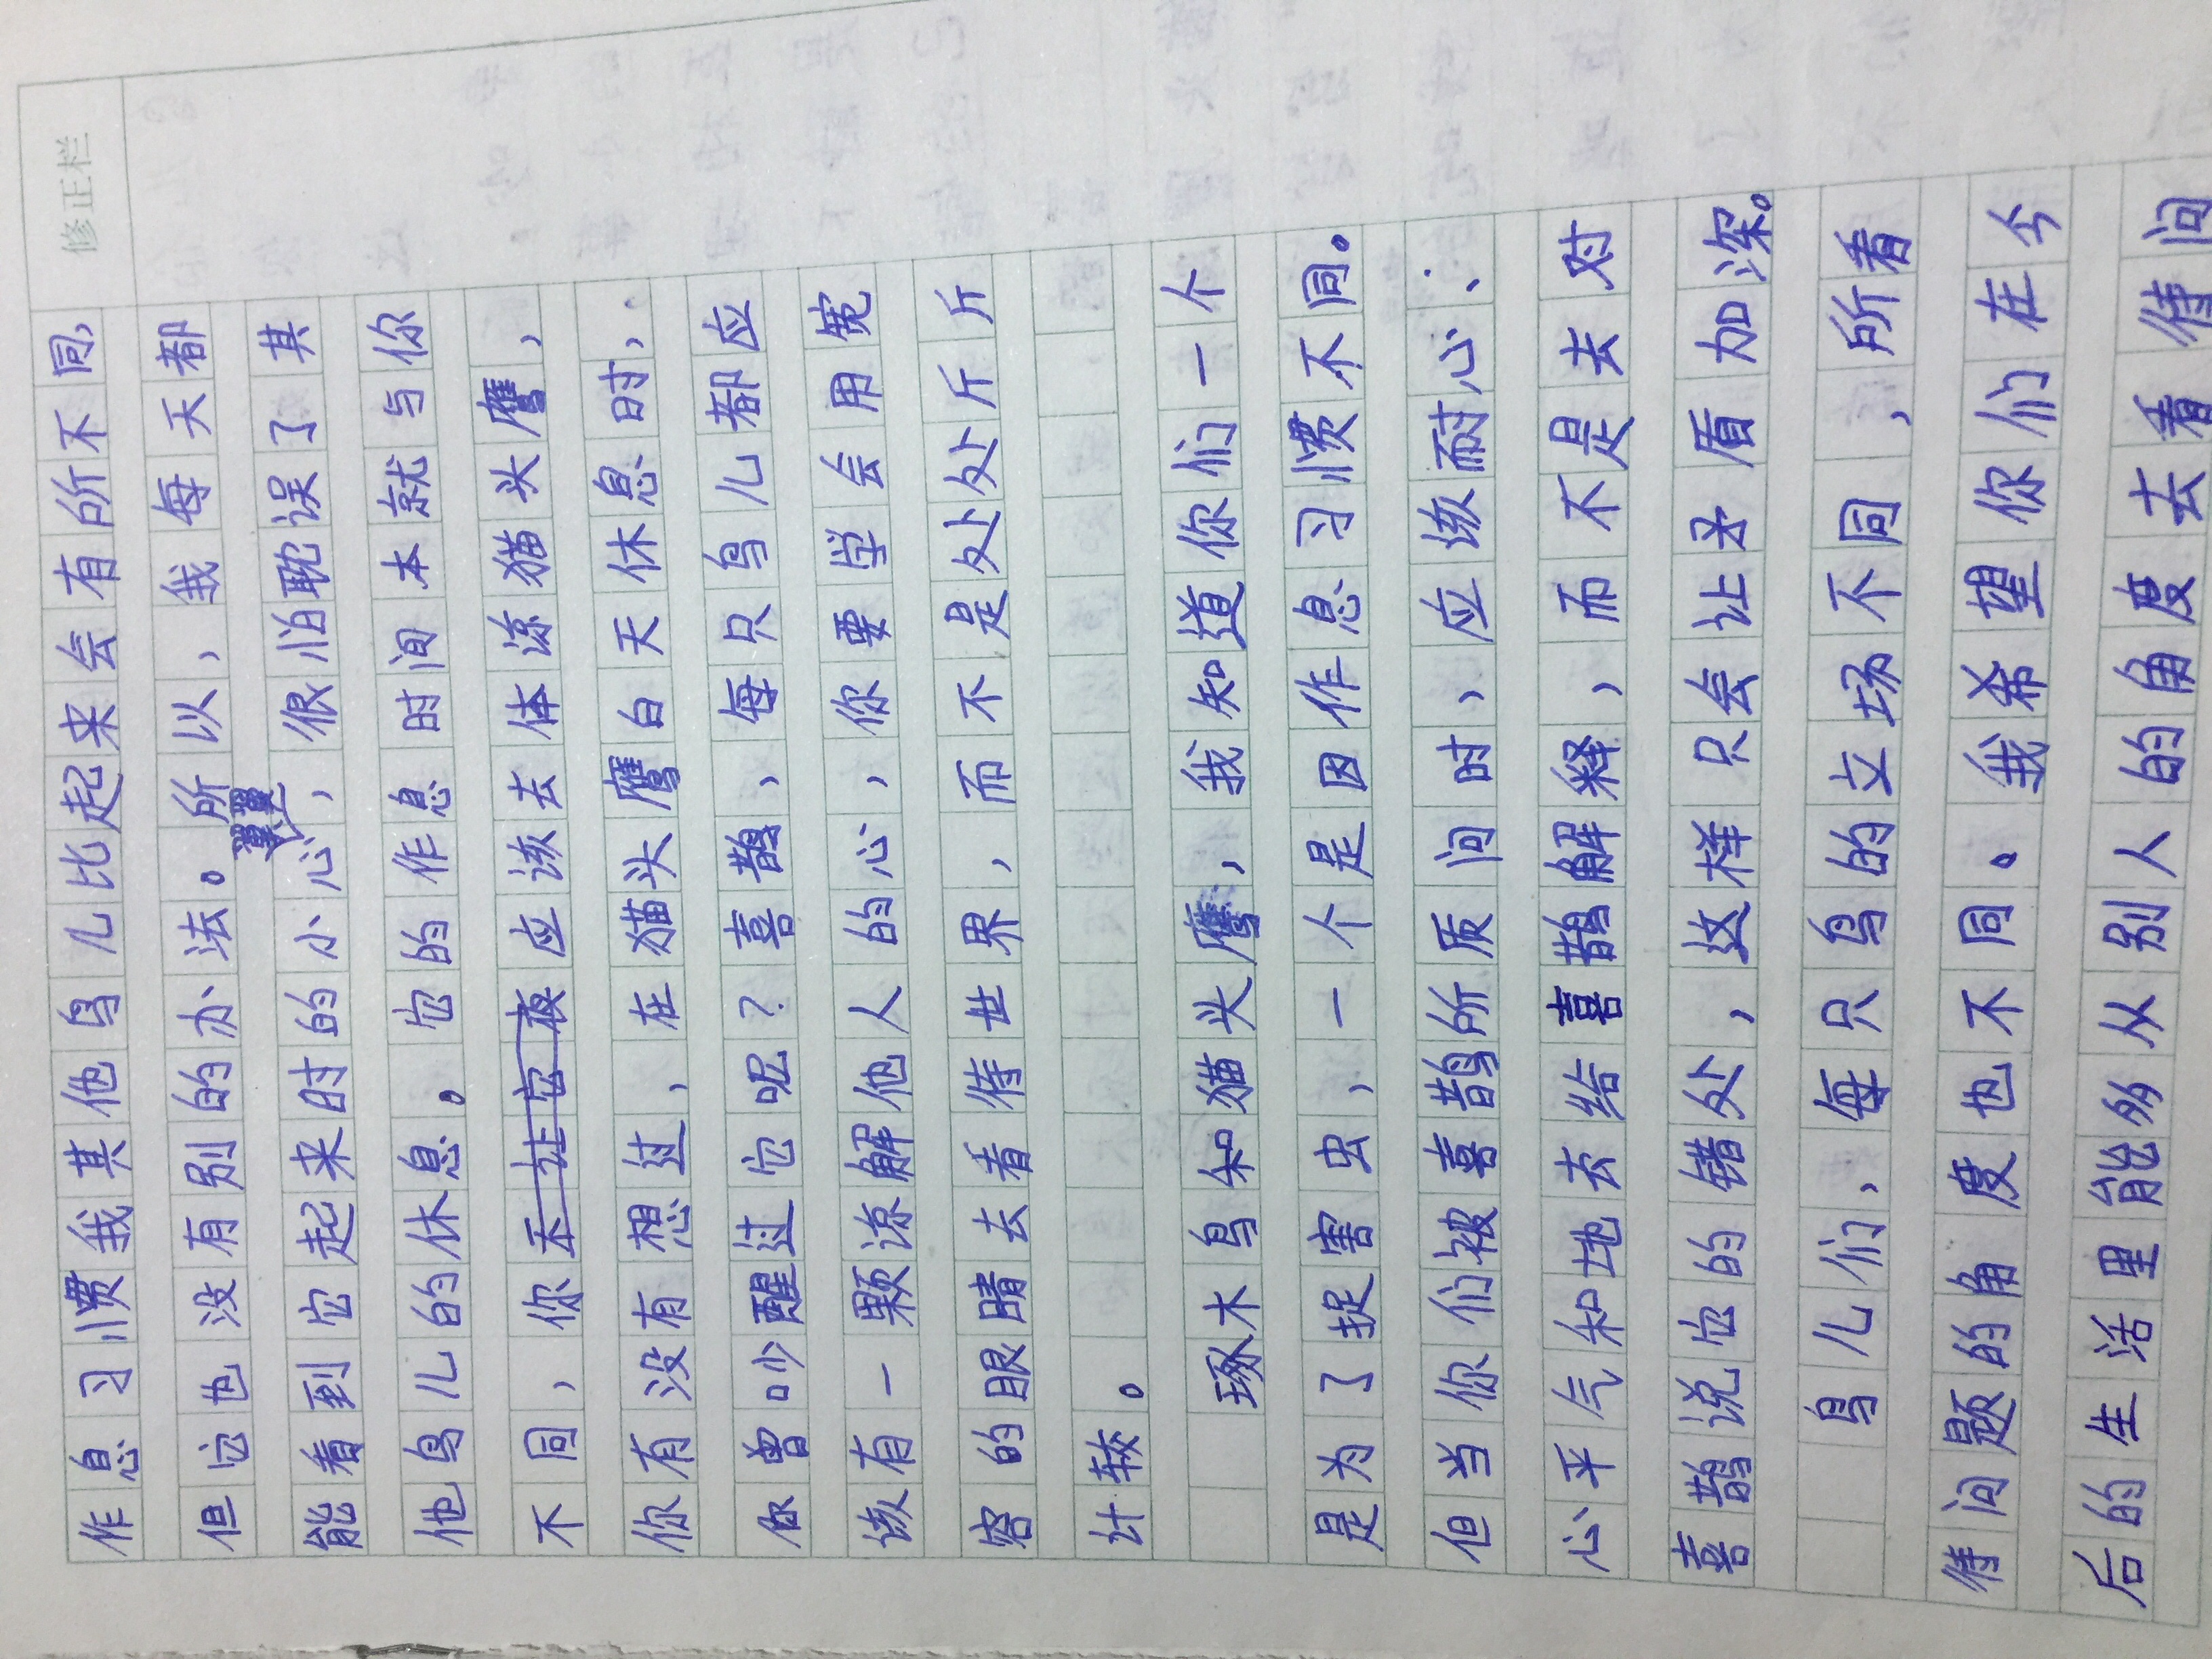 修正栏
作息习惯我其他鸟儿比起来会有所不同,
但它也没有别的办法。所以,我每天都
能看到它起来时的小心翼翼,很怕耽误了其
他鸟儿的休息。它的作息时间本就与你
不同,你应该去体谅猫头鹰,
你有没有想过,在猫头鹰白天休息时,
你曾吵醒过它呢?喜鹊,每只鸟儿都应
该有一颗谅解他人的心,你要学会用宽
容的眼睛去看待世界,而不是处处斤斤
计较。
啄木鸟和猫头鹰,我知道你们一个
是为了捉害虫,一个是因作息习惯不同。
但当你们被喜鹊所质问时,应该耐心、
心平气和地去给喜鹊解释,而不是去对
喜鹊说它的错处,这样只会让矛盾加深。
鸟儿们,每只鸟的立场不同,所看
待问题的角度也不同。我希望你们在今
后的生活里能多从别人的角度去看待问